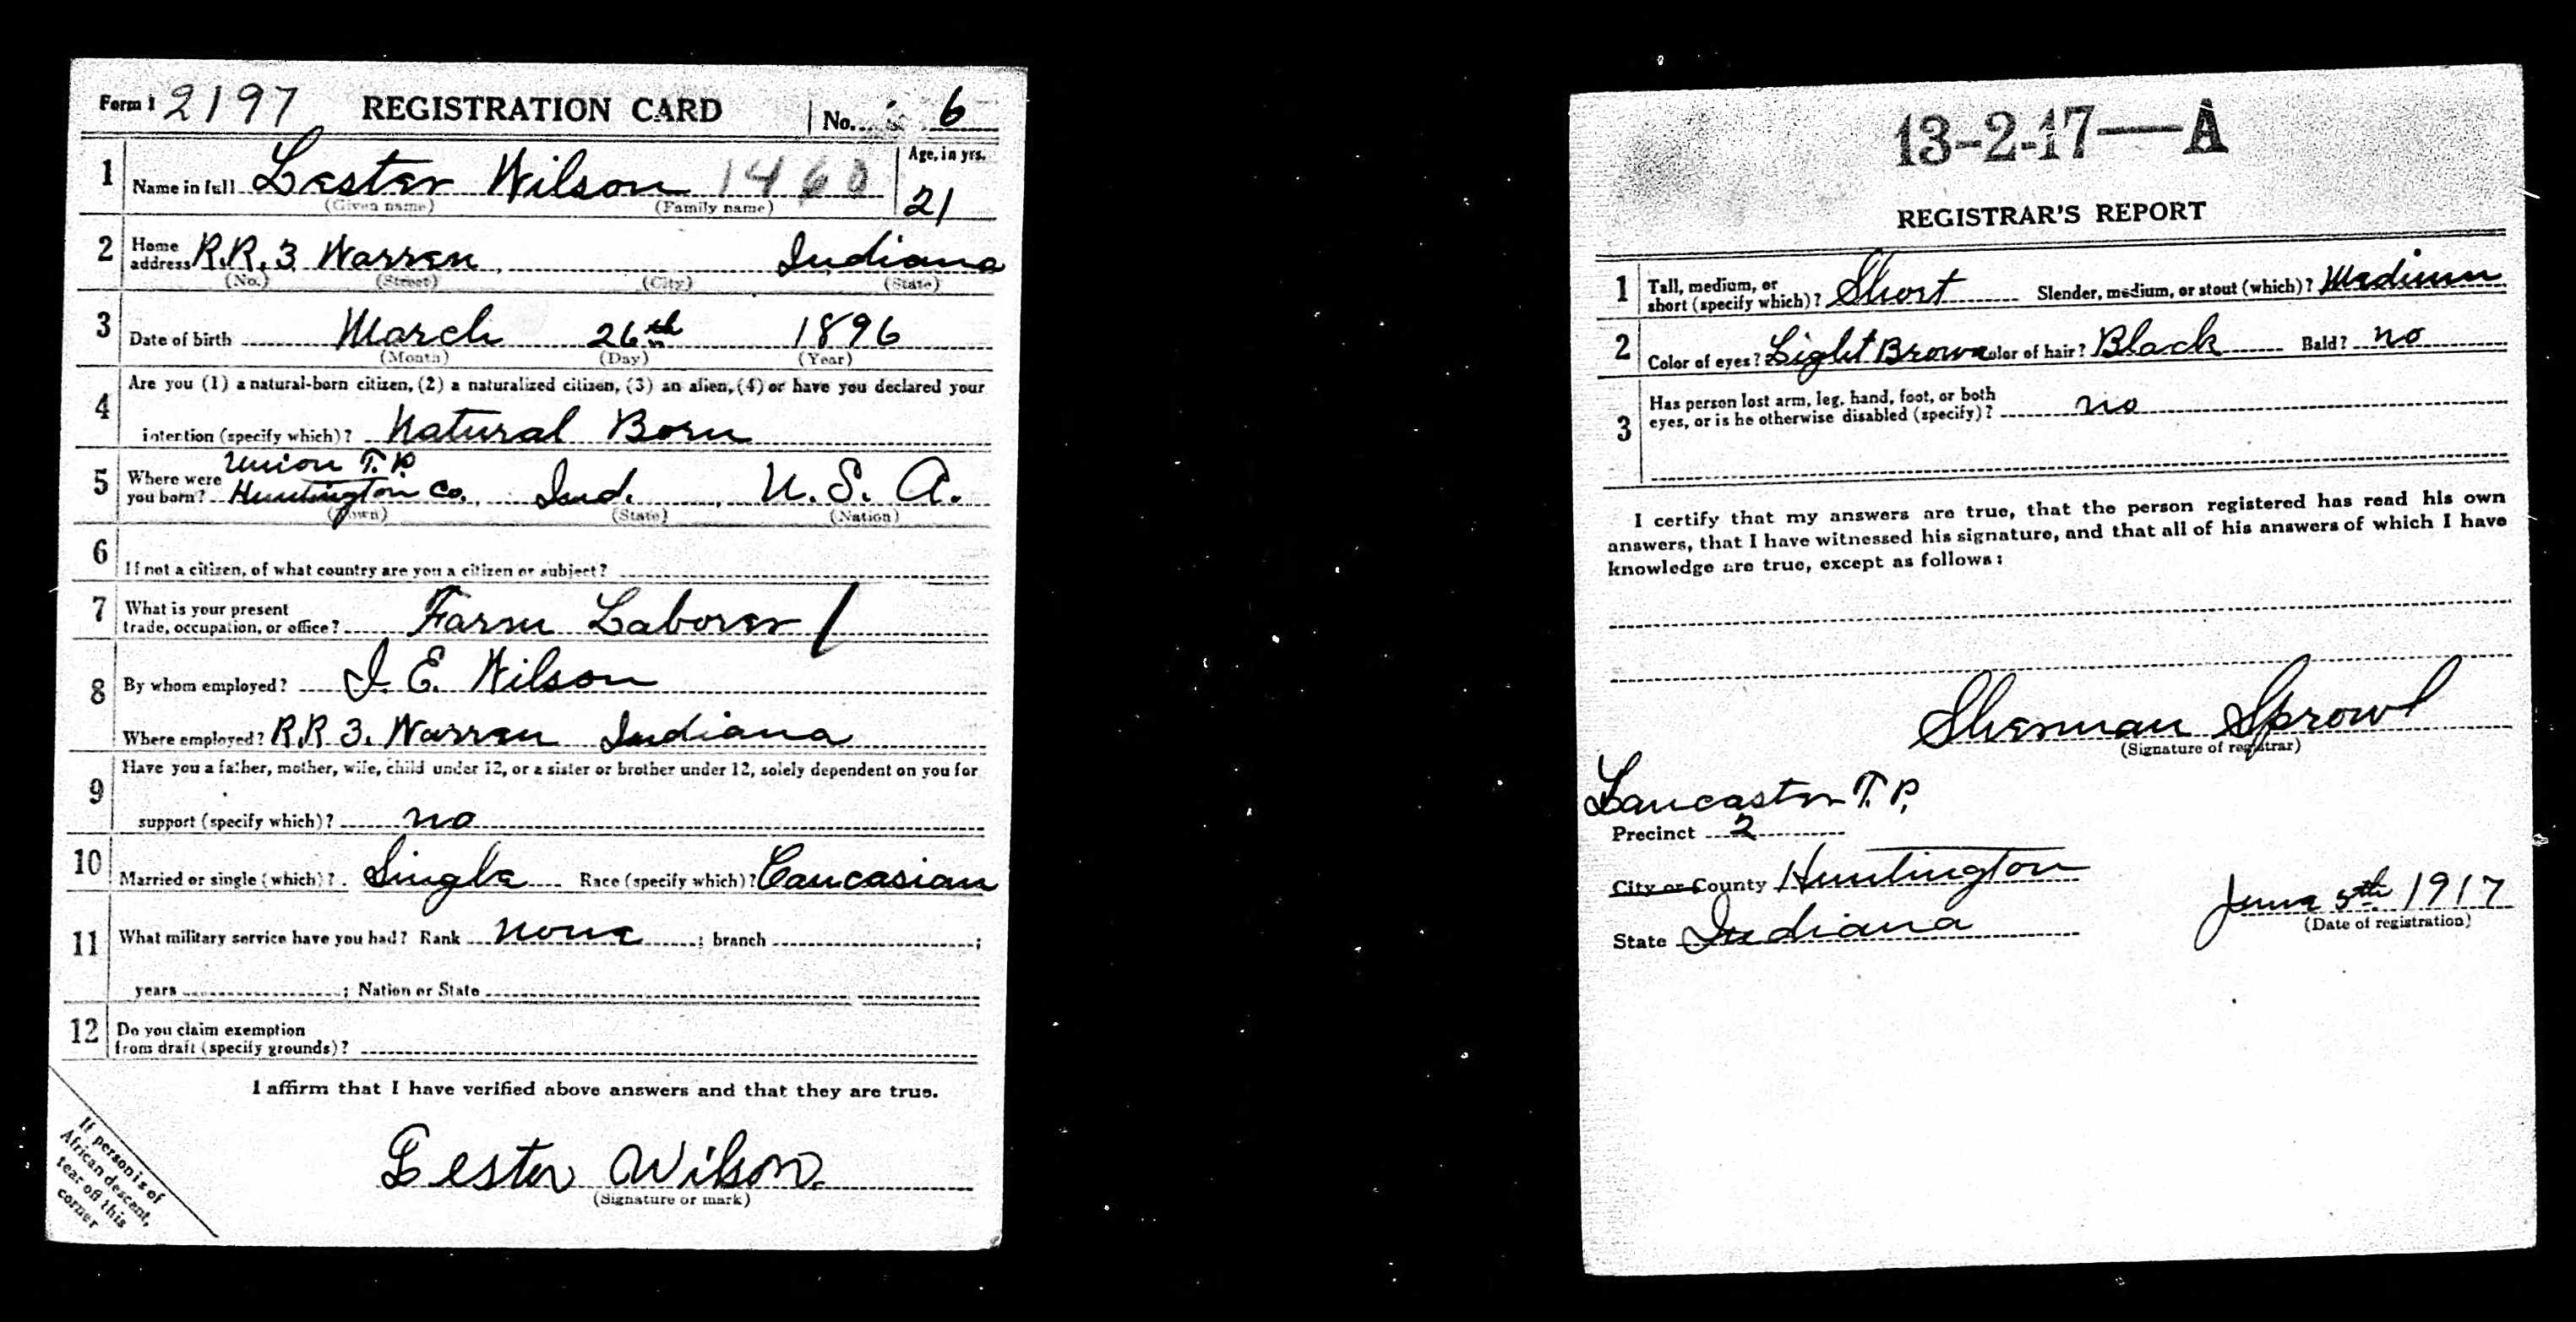 Form 1 2197 REGISTRATION CARD No. 6
1 Name in full Lester Wilson 1460 Age, in yrs. 21
(Given name) (Family name)
2 Home address R.R. 3 Warren, Indiana
(No.) (Street) (City) (State)
3 Date of birth March 26th 1896
(Month) (Day) (Year)
4 Are you (1) a natural-born citizen, (2) a naturalized citizen, (3) an alien, (4) or have you declared your
intention (specify which)? Natural Born
Union T.P.
5 Where were you born? Huntington Co., Ind., U. S. A.
(Town) (State) (Nation)
6 If not a citizen, of what country are you a citizen or subject?
7 What is your present
trade, occupation, or office? Farm Laborer /
8 By whom employed? I. E. Wilson
Where employed? R.R 3. Warren Indiana
9 Have you a father, mother, wife, child under 12, or a sister or brother under 12, solely dependent on you for
support (specify which)? no
10 Married or single (which)? Single Race (specify which)? Caucasian
11 What military service have you had? Rank none ; branch ;
years ; Nation or State
12 Do you claim exemption
from draft (specify grounds)?
I affirm that I have verified above answers and that they are true.
Lester Wilson.
(Signature or mark)
If person is of
African descent,
tear off this
corner
13-2-17—A
REGISTRAR'S REPORT
1 Tall, medium, or
short (specify which)? Short Slender, medium, or stout (which)? Medium
2 Color of eyes? Light Brown Color of hair? Black Bald? no
3 Has person lost arm, leg, hand, foot, or both
eyes, or is he otherwise disabled (specify)? no
I certify that my answers are true, that the person registered has read his own
answers, that I have witnessed his signature, and that all of his answers of which I have
knowledge are true, except as follows:
Sherman Sprowl
(Signature of registrar)
Lancaster T.P.
Precinct 2
City or County Huntington
State Indiana
June 5th 1917
(Date of registration)